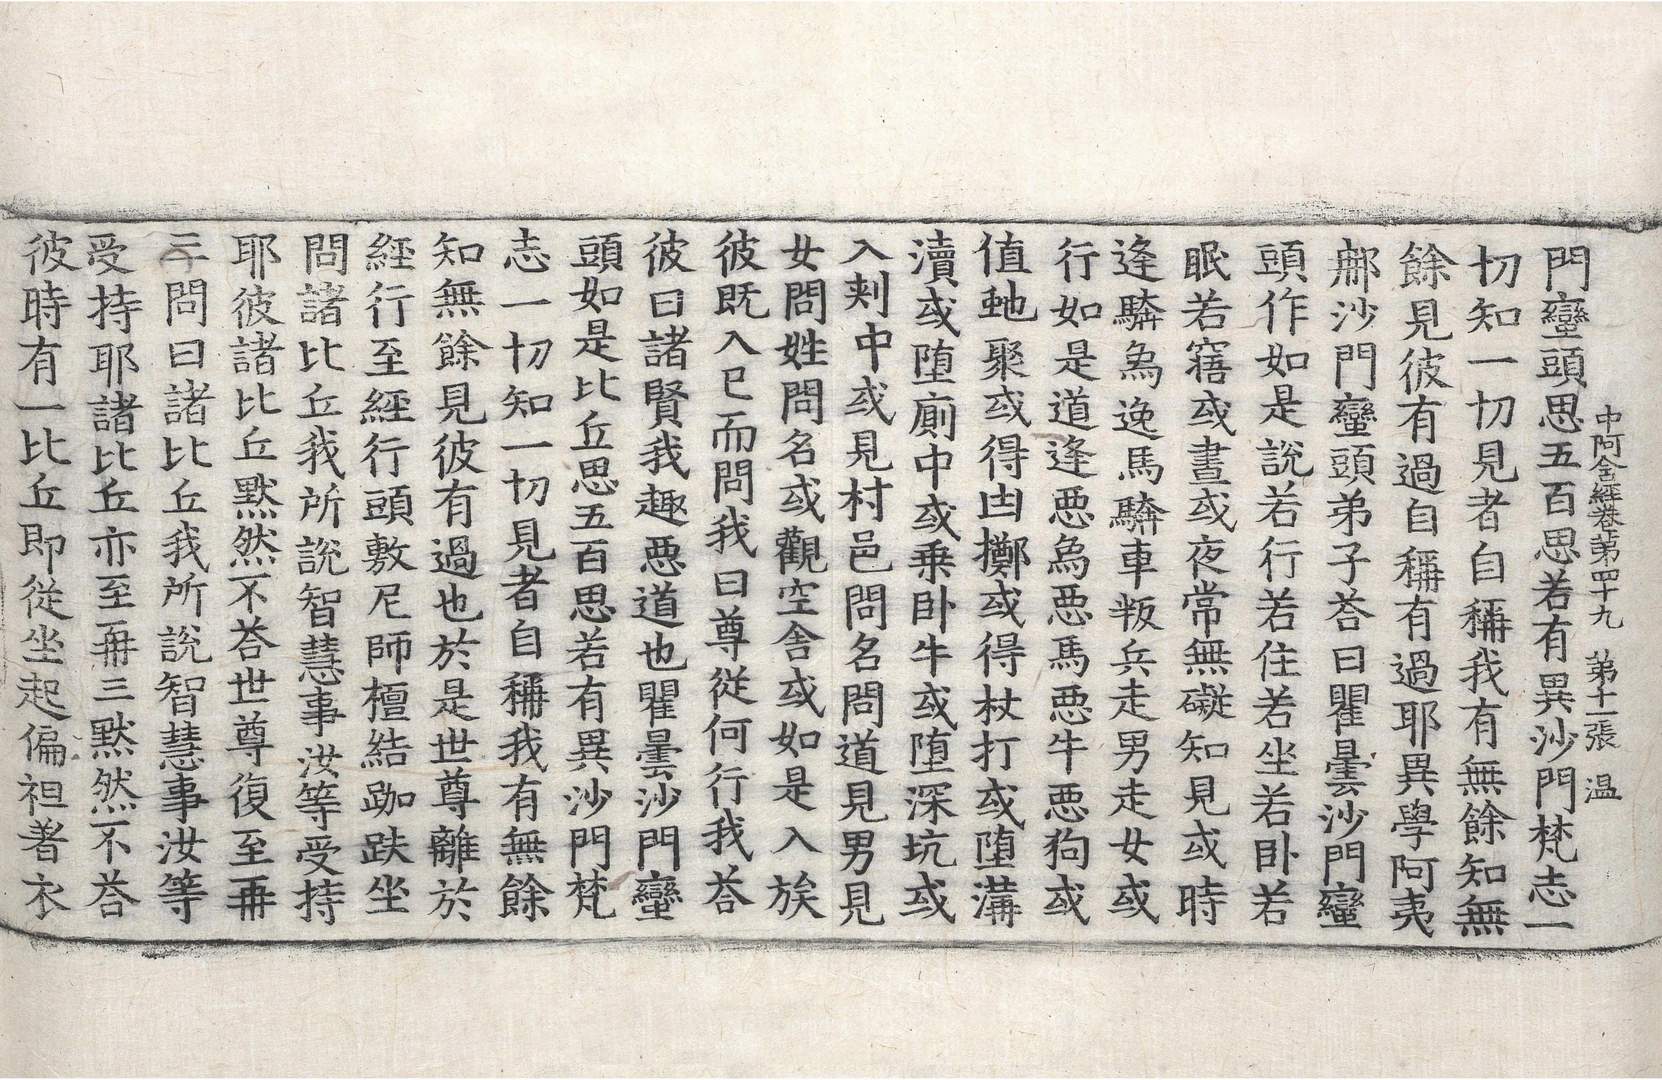 中阿含經卷第四十九　第十一張　温
門蠻頭思五百思若有異沙門梵志一
切知一切見者自稱我有無餘知無
餘見彼有過自稱有過耶異學阿夷
𨙻沙門蠻頭弟子荅曰瞿曇沙門蠻
頭作如是說若行若住若坐若卧若
眠若寤或晝或夜常無礙知見或時
逢騎象逸馬騎車叛兵走男走女或
行如是道逢惡象惡馬惡牛惡狗或
值虵聚或得凷擲或得杖打或墮溝
瀆或墮廁中或乗卧牛或墮深坑或
入刾中或見村邑問名問道見男見
女問姓問名或觀空舍或如是入族
彼既入已而問我曰尊從何行我荅
彼曰諸賢我趣惡道也瞿曇沙門蠻
頭如是比丘思五百思若有異沙門梵
志一切知一切見者自稱我有無餘
知無餘見彼有過也於是世尊離於
經行至經行頭敷尼師檀結跏趺坐
問諸比丘我所說智慧事汝等受持
耶彼諸比丘默然不荅世尊復至再
三問曰諸比丘我所說智慧事汝等
受持耶諸比丘亦至再三默然不荅
彼時有一比丘即從坐起偏袒著衣